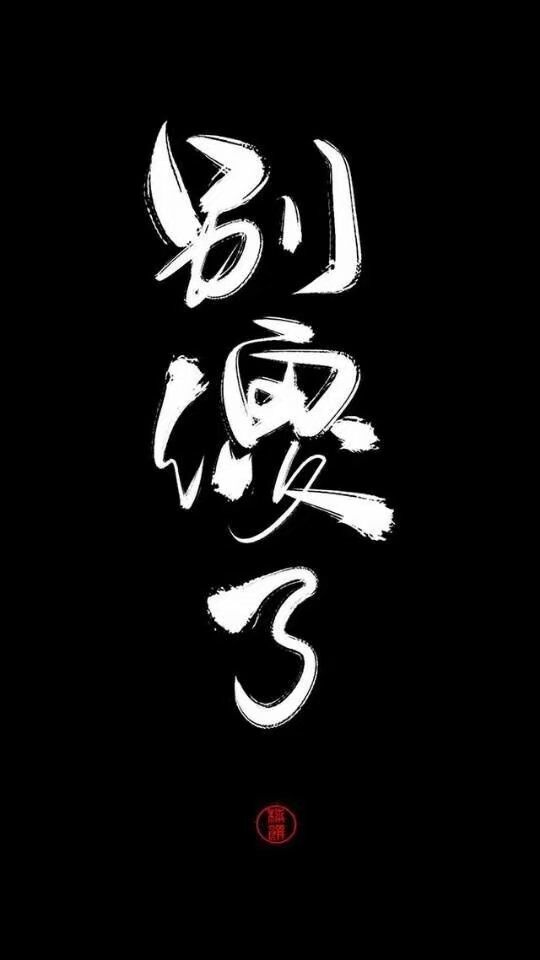 别傻了